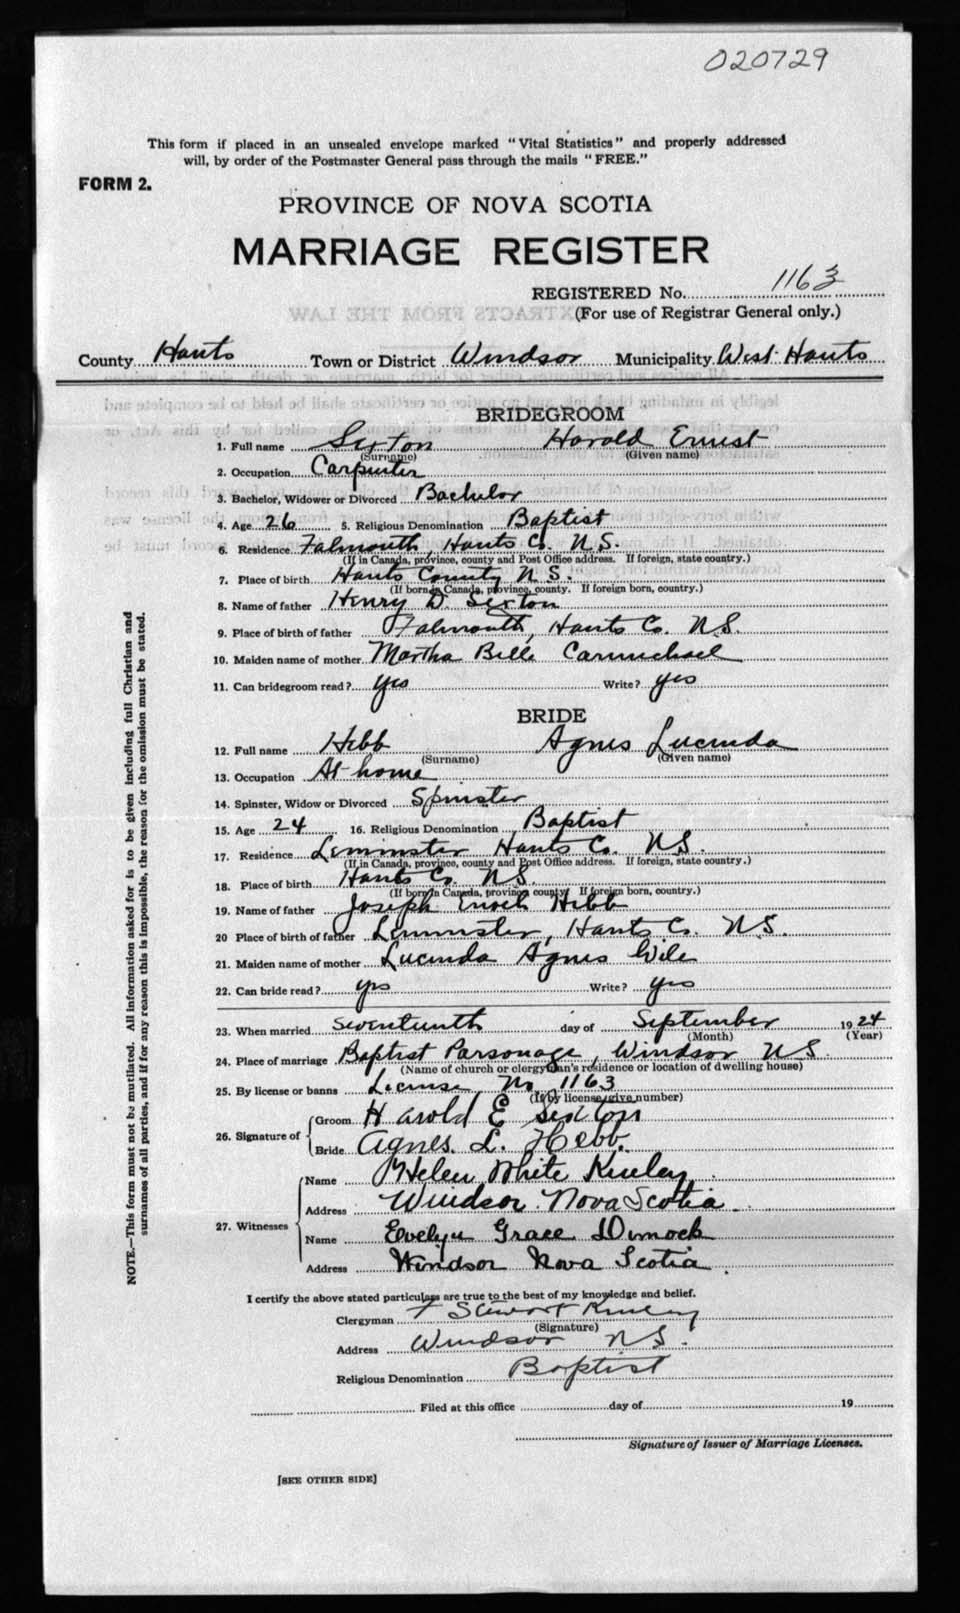 020729
This form if placed in an unsealed envelope marked "Vital Statistics" and properly addressed
will, by order of the Postmaster General pass through the mails "FREE."
FORM 2.
PROVINCE OF NOVA SCOTIA
MARRIAGE REGISTER
REGISTERED No. 1163
(For use of Registrar General only.)
County Hants Town or District Windsor Municipality West Hants
BRIDEGROOM
1. Full name Sexton Harold Ernest
(Surname) (Given name)
2. Occupation Carpenter
3. Bachelor, Widower or Divorced Bachelor
4. Age 26 5. Religious Denomination Baptist
6. Residence Falmouth, Hants Co. N.S.
(If in Canada, province, county and Post Office address. If foreign, state country.)
7. Place of birth Hants County N.S.
(If born in Canada, province, county. If foreign born, country.)
8. Name of father Henry D. Sexton
9. Place of birth of father Falmouth, Hants Co. N.S.
10. Maiden name of mother Martha Belle Carmichael
11. Can bridegroom read? yes Write? yes
BRIDE
12. Full name Hebb Agnes Lucinda
(Surname) (Given name)
13. Occupation At home
14. Spinster, Widow or Divorced Spinster
15. Age 24 16. Religious Denomination Baptist
17. Residence Leminster Hants Co. N.S.
(If in Canada, province, county and Post Office address. If foreign, state country.)
18. Place of birth Hants Co. N.S.
(If born in Canada, province county. If foreign born, country.)
19. Name of father Joseph Enoch Hebb
20 Place of birth of father Leminster, Hants Co. N.S.
21. Maiden name of mother Lucinda Agnes Wile
22. Can bride read? yes Write? yes
23. When married seventeenth day of September 1924
(Month) (Year)
24. Place of marriage Baptist Parsonage, Windsor N.S.
(Name of church or clergyman's residence or location of dwelling house)
25. By license or banns License No 1163
(If by license, give number)
26. Signature of Groom Harold E Sexton
Bride Agnes. L. Hebb.
27. Witnesses Name Helen White Kinley
Address Windsor Nova Scotia
Name Evelyn Grace Dimock
Address Windsor Nova Scotia.
I certify the above stated particulars are true to the best of my knowledge and belief.
Clergyman F Stewart Kinley
(Signature)
Address Windsor N.S.
Religious Denomination Baptist
Filed at this office day of 19
Signature of Issuer of Marriage Licenses.
[SEE OTHER SIDE]
NOTE.—This form must not be mutilated. All information asked for is to be given including full Christian and
surnames of all parties, and if for any reason this is impossible, the reason for the omission must be stated.